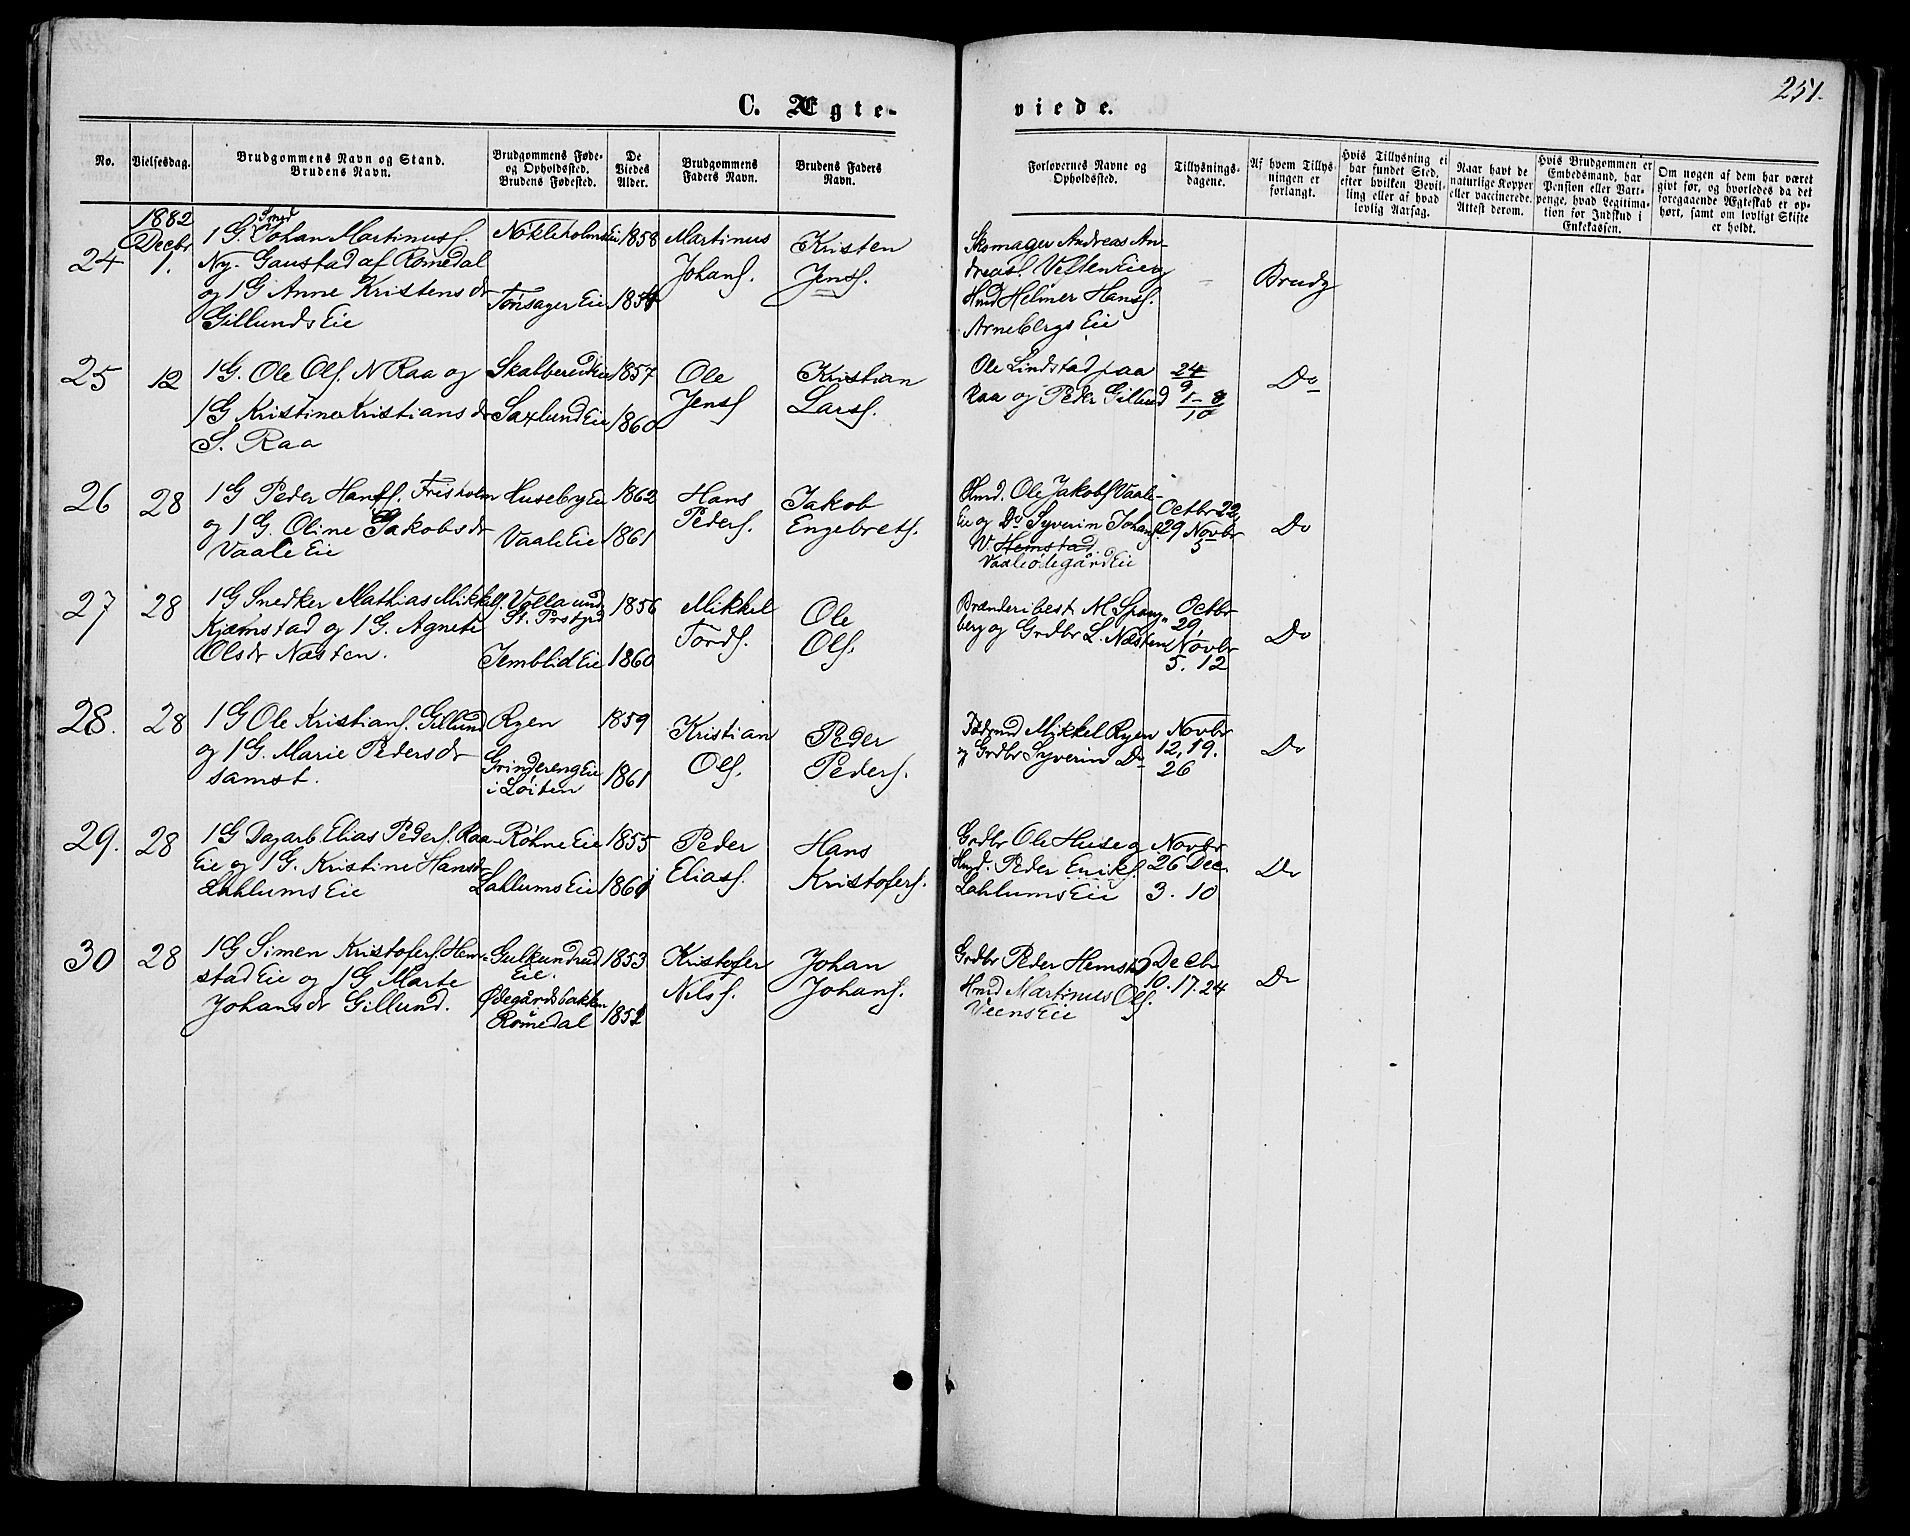 251.
C. Ægte-
viede.
No.
Vielsesdag.
Brudgommens Navn og Stand.
Brudens Navn.
Brudgommens Føde-
og Opholdssted.
Brudens Fødested.
De
Viedes
Alder.
Brudgommens
Faders Navn.
Brudens Faders
Navn.
Forlovernes Navne og
Opholdssted.
Tillysnings-
dagene.
Af hvem Tillys-
ningen er
forlangt.
Hvis Tillysning ei
har fundet Sted,
efter hvilken Bevil-
ling eller af hvad
lovlig Aarsag.
Naar havt de
naturlige Kopper
eller vaccinerede.
Attest derom.
Hvis Brudgommen er
Embedsmand, har
Pension eller Vart-
penge, hvad Legitima-
tion for Indskud i
Enkekassen.
Om nogen af dem har været
givt før, og hvorledes da det
foregaaende Ægteskab er op-
hørt, samt om lovligt Skifte
er holdt.
24
1882
Decbr
1.
Smed
1 G. Johan Martinus f.
Ny-Gaustad af Romedal
og 1 G Anne Kristensdr
Gillunds Eie
Nökleholms Ei
Tönsager Eie
1858
1854
Martinus
Johans.
Kristen
Jens.
Skomager Andreas An-
dreas. Velten Eie og
Hmd Helmer Hans.
Arnebergs Eie
Brudg
25
12
1 G. Ole Ols. N Raa og
1 G Kristine Kristiansdr
S. Raa
Skalbereid Eie
Saxlund Eie
1857
1860
Ole
Jens
Kristian
Lars.
Ole Lindstad paa
Raa og Peder Gillund
24
9
1-8
10
Do
26
28
1 G Peder Hans. Frisholm
og 1 G. Oline Jakobsdr
Vaale Eie
Huseby Eie
Vaale Eie
1862
1861
Hans
Peders.
Jakob
Engebrets.
Hmd. Ole Jakobs Vaale-
Eie og Do Syverin Johans
V. Hemstad
Vaaleödegård Eie
Octbr 22,
29 Novbr
5
Do
27
28
1 G Snedker Mathias Mikkels.
Kjæmstad og 1 G. Agnete
Olsdr Næsten.
Volla und
St. Prstgd
Jemblid Eie
1856
1860
Mikkel
Tords.
Ole
Ols.
Brænderibest. M. Spang-
berg og Grdbr L. Næsten
Octbr
29,
Novbr
5. 12
Do
28.
28
1 G Ole Kristians. Gillund
og 1 G. Marie Pedersdr
samst.
Ryen
Grindereng Eie
i Löiten
1859
1861
Kristian
Ols.
Peder
Peders.
Föderaad Mikkel Ryen
og Grdbr Syverin Do
Novbr
12, 19.
26
Do
29.
28
1 G Dagarb. Elias Peders. Raa-
Eie og 1 G. Kristine Hansdr
Lahlums Eie
Röhne Eie
Lahlums Eie
1855
1861
Peder
Elias.
Hans
Kristofers.
Grdbr Ole Huse og
Hmd. Peder Eriks.
Lahlums Eie
Novbr
26 Dec.
3. 10
Do
30
28
1 G Simen Kristofers. Hem-
stad Eie og 1 G Marte
Johansdr Gillund.
Gulkundrud
Eie.
Ødegårdsbakken
Romedal
1853
1852
Kristofer
Nils.
Johan
Johans.
Grdbr Peder Hemstd
Hmd Martinus Ols.
Veens Eie
Decbr
10. 17. 24
Do